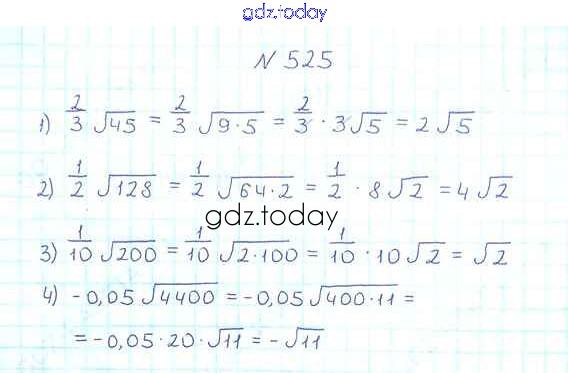 gdz.today
N 525
1) 2/3 √45 = 2/3 √9·5 = 2/3 · 3√5 = 2√5
2) 1/2 √128 = 1/2 √64·2 = 1/2 · 8√2 = 4√2
gdz.today
3) 1/10 √200 = 1/10 √2·100 = 1/10 · 10√2 = √2
4) -0,05 √4400 = -0,05 √400·11 =
= -0,05·20·√11 = -√11